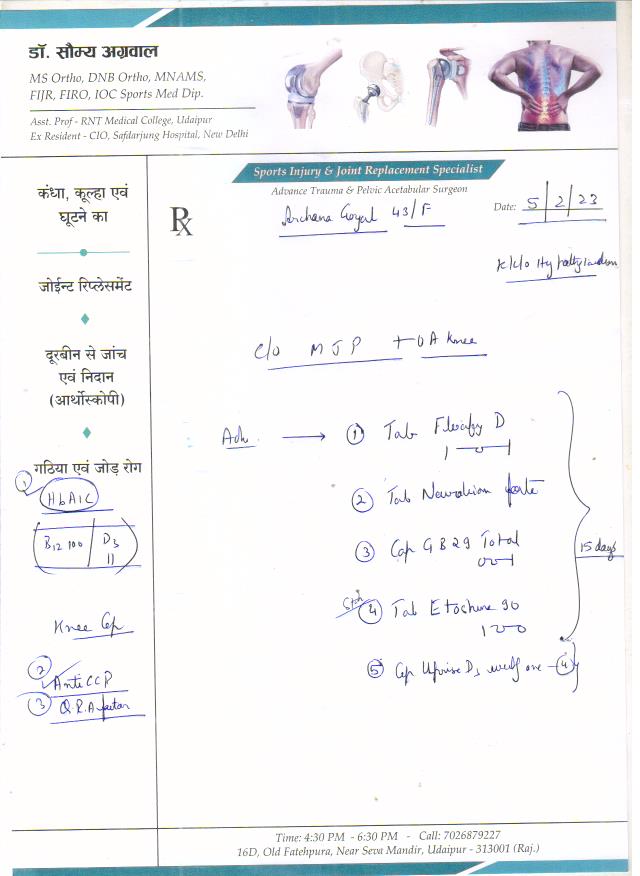 डॉ. सौम्य अग्रवाल
MS Ortho, DNB Ortho, MNAMS,
FIJR, FIRO, IOC Sports Med Dip.
Asst. Prof - RNT Medical College, Udaipur
Ex Resident - CIO, Safdarjung Hospital, New Delhi
Sports Injury & Joint Replacement Specialist
Advance Trauma & Pelvic Acetabular Surgeon
Rx
Archana Goyal 43/F
Date: 5/2/23
K/C/O
कंधा, कूल्हा एवं
घूटने का
जोईन्ट रिप्लेसमेंट
दूरबीन से जांच
एवं निदान
(आर्थोस्कोपी)
गठिया एवं जोड़ रोग
C/O MJP + OA Knee
Adv.
① Tab D
② Tab forte
③ Cap GB29 Total
001
④ Tab Etoshine 90
⑤ Cap Uprise D3 one - ④
15 days
① HbA1C
B12 100 | D3 11
Knee Cap
② Anti CCP
③ Q.R.A factor
Time: 4:30 PM - 6:30 PM - Call: 7026879227
16D, Old Fatehpura, Near Seva Mandir, Udaipur - 313001 (Raj.)